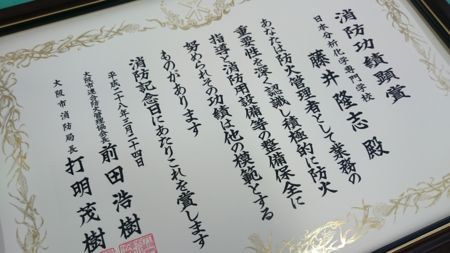 消防功績顕賞
日本分析化学専門学校
藤井隆志 殿
あなたは防火管理者として業務の
重要性を深く認識し積極的に防火
指導と消防用設備等の整備保全に
努められその功績は他の模範とする
ものがあります
消防記念日にあたりこれを賞します
平成二十八年三月二十四日
大阪市連合防火管理協会長 前田浩樹
大阪市消防局長 打明茂樹